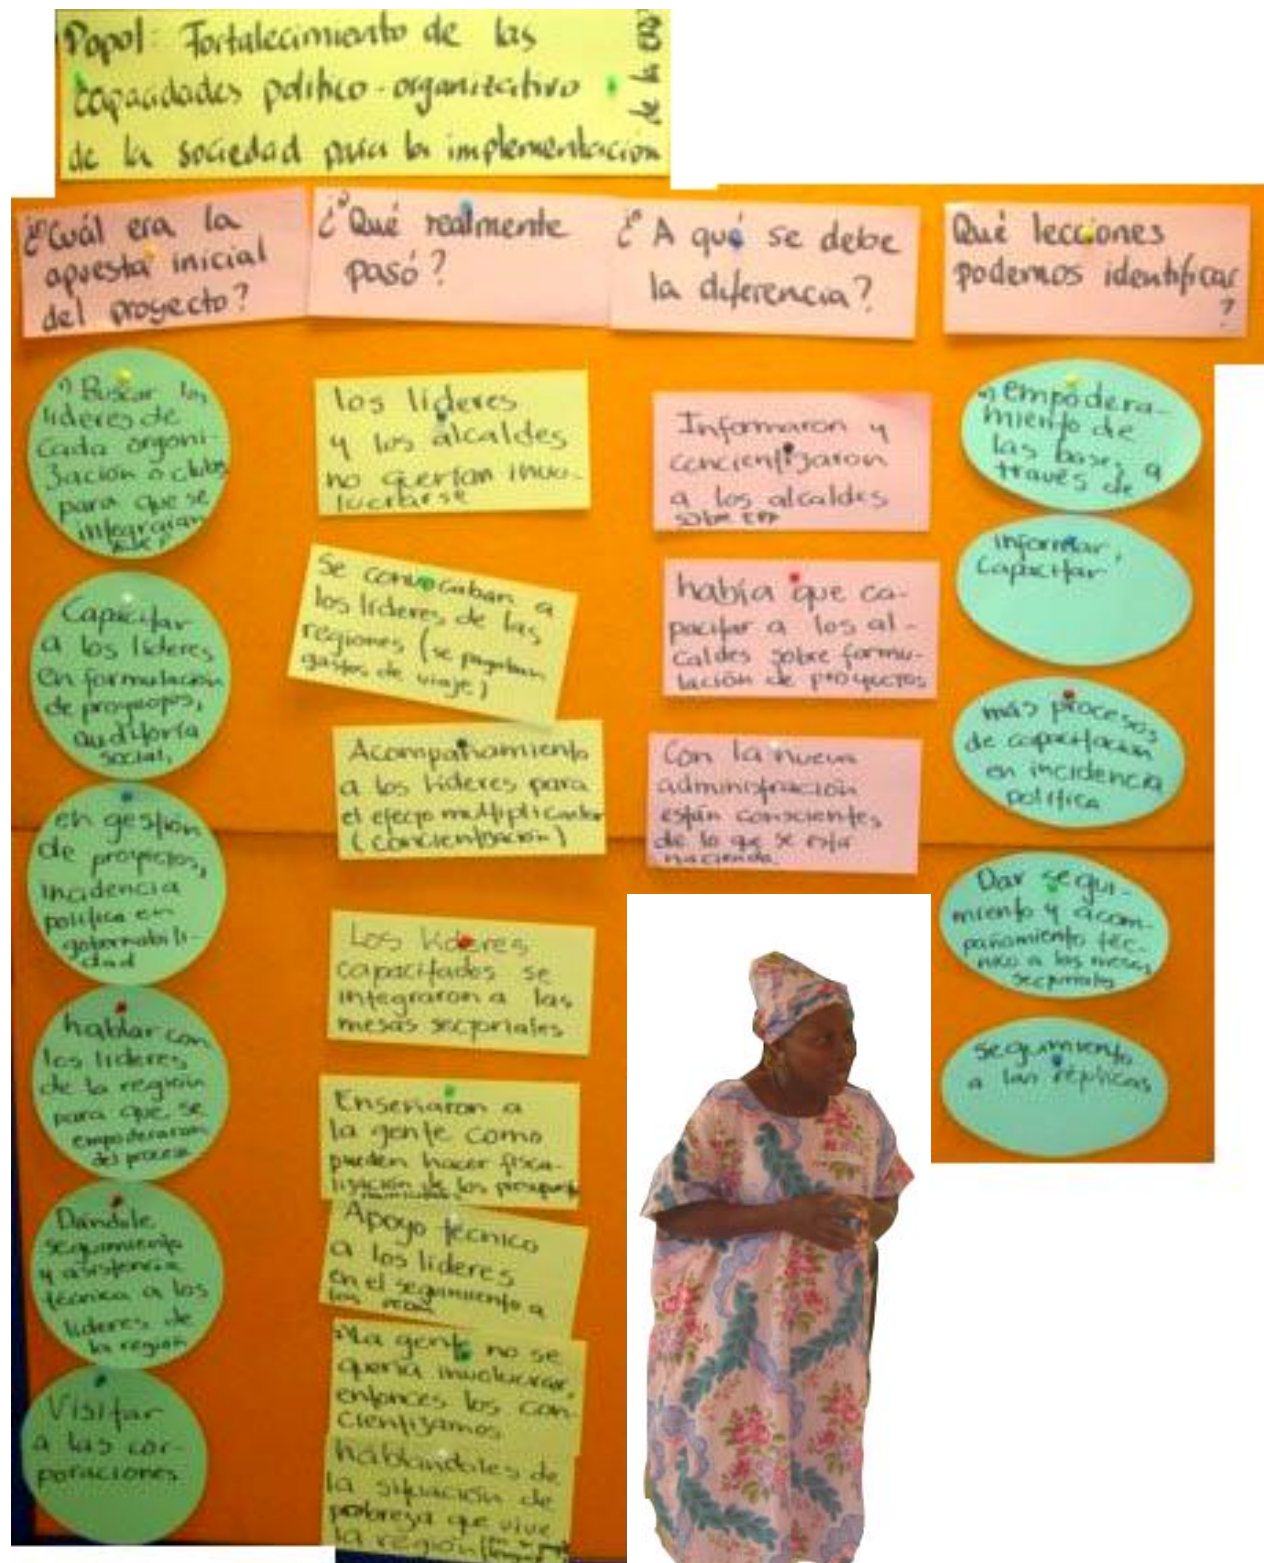 Popol: Fortalecimiento de las
capacidades político-organizativo
de la sociedad para la implementación
de la ERP
¿Cuál era la
apuesta inicial
del proyecto?
1) Buscar los
líderes de
cada organi-
zación o clubs
para que se
integraran
Capacitar
a los líderes
en formulación
de proyectos,
auditoría
social,
en gestión
de proyectos,
incidencia
política en
gobernabili-
dad
hablar con
los líderes
de la región
para que se
empoderaran
del proceso
Dándole
seguimiento
y asistencia
técnica a los
líderes de
la región
Visitar
a las cor-
poraciones
¿Qué realmente
pasó?
los líderes
y los alcaldes
no querían invo-
lucrarse
Se convocaban a
los líderes de las
regiones (se pagaban
gastos de viaje)
Acompañamiento
a los líderes para
el efecto multiplicador
(concientización)
Los líderes
capacitados se
integraron a las
mesas sectoriales
Enseñaron a
la gente como
pueden hacer fisca-
lización de los presupuestos
municipales
Apoyo técnico
a los líderes
en el seguimiento a
los
La gente no se
quería involucrar,
entonces los con-
cientizamos
hablándoles de
la situación de
pobreza que vive
la región
¿A qué se debe
la diferencia?
Informaron y
concientizaron
a los alcaldes
sobre ERP
había que ca-
pacitar a los al-
caldes sobre formu-
lación de proyectos
Con la nueva
administración
están conscientes
de lo que se está
haciendo
Qué lecciones
podemos identificar
?
1) empodera-
miento de
las bases a
través de
informar,
capacitar
más procesos
de capacitación
en incidencia
política
Dar segui-
miento y acom-
pañamiento téc-
nico a las mesas
sectoriales
seguimiento
a las réplicas